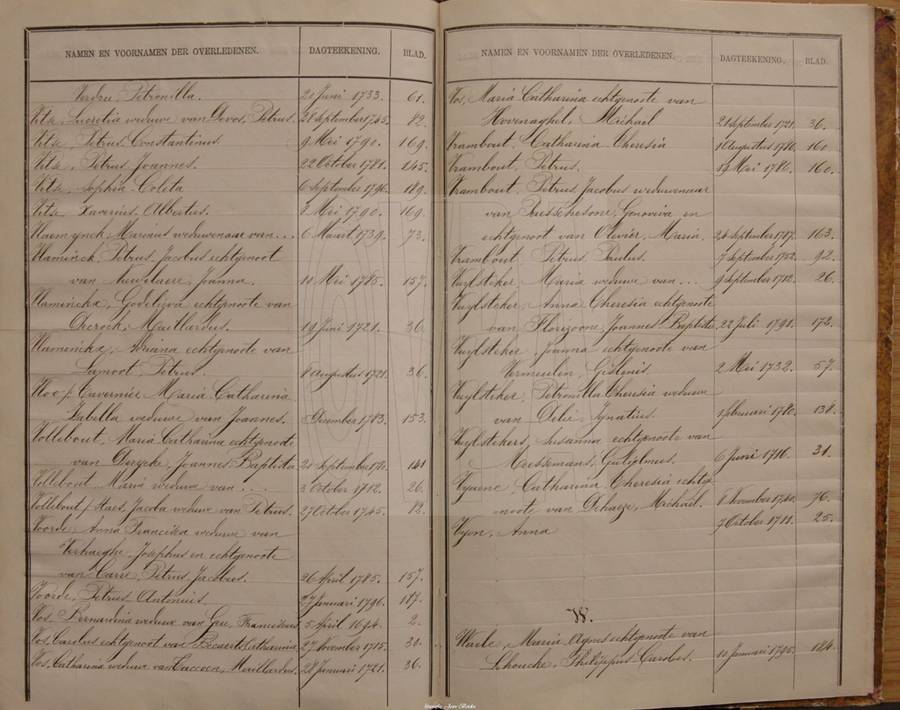 NAMEN EN VOORNAMEN DER OVERLEDENEN. DAGTEEKENING. BLAD.
Verdru, Petronilla. 21 Juni 1733. 61.
Vits, Lucretia weduwe van Devos, Petrus. 21 September 1745. 82.
Vitse, Petrus Constantinus. 9 Mei 1790. 169.
Vitse, Petrus Joannes. 22 October 1781. 145.
Vitse, Sophia Coleta 6 September 1796. 189.
Vitse, Xaverius Albertus. 2 Mei 1790. 169.
Vlaemynck, Marinus weduwenaar van ... 6 Maart 1739. 73.
Vlaminck, Petrus Jacobus echtgenoot
van Joanna. 11 Mei 1785. 157.
Vlaminckx, Godelieva echtgenoote van
Decrock, Maillardus. 19 Juni 1721. 36.
Vlaminckx, Adriana echtgenoote van
Lamoot, Petrus. 8 Augustus 1721. 36.
Maria Catharina
Isabella weduwe van Joannes. December 1783. 153.
Vollebout, Maria Catharina echtgenoote
van Derycke, Joannes Baptista 141
Vollebout, Maria weduwe van ... 3 October 1712. 26.
Vollebout / Staes, Jacoba weduwe van Petrus. 27 October 1745. 82.
Voorde, Anna Francisca weduwe van
Verhaeghe, Josephus en echtgenoote
van Carre, Petrus Jacobus. 26 April 1785. 157.
Voorde, Petrus Antonius. 27 Januari 1796. 187.
Vos, Bernardina weduwe van Franciscus 5 April 1694. 2.
Vos, Carolus echtgenoot van Catharina 27 November 1715. 30.
Vos, Catharina weduwe van Caccoen, Maillardus. 28 Januari 1721. 36.
NAMEN EN VOORNAMEN DER OVERLEDENEN. DAGTEEKENING. BLAD.
Vos, Maria Catharina echtgenoote van
Hovenaghel, Michael 21 September 1721. 36.
Vrambout, Catharina Theresia 1 Augustus 1786. 160.
Vrambout, Petrus. Mei 1786. 160.
Vrambout, Petrus Jacobus weduwenaar
van Genoviva en
echtgenoot van Olivier, Maria. 24 September 1787. 163.
Vrambout, Petrus Paulus. 7 September 1752. 92.
Vuylsteker, Maria weduwe van ... 9 September 1712. 26.
Vuylsteker, Anna Theresia echtgenoote
van Florizoone, Joannes Baptiste 22 Juli 1791. 172.
Vuylsteker, Joanna echtgenoote van
Vermeulen, Gislenis. 2 Mei 1732. 57.
Vuylsteker, Petronilla Theresia weduwe
van Delie, Ignatius. 1 Februari 1780. 138.
Vuylstekers, Susanna echtgenoote van
Messemans, Gulielmus. 6 Juni 1716. 31.
Catharina Theresia echtge-
noote van Dehaeze, Michael. 8 November 1740. 76.
Vyen, Anna 7 October 1711. 25.
W.
Waele, Maria Agnes echtgenoote van
Lhoucke, Philippus Carolus. 10 Januari 1795. 184.